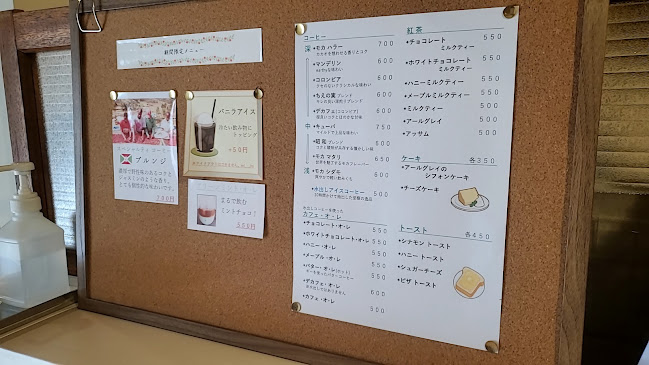 期間限定メニュー
ブルンジ
700円
バニラアイス
冷たい飲み物に
トッピング
+50円
まるで飲む
ミントチョコ!
500円
コーヒー
深 •モカ ハラー 700
•マンデリン 600
•コロンビア 600
•ちえの実 ブレンド 600
•デカフェ(コロンビア) 600
中 •キューバ 750
ブレンド
•モカ マタリ 650
浅 •モカ シダモ 550
•水出しアイスコーヒー 500
水出しコーヒーを使った
カフェ・オ・レ
•チョコレート・オ・レ 550
•ホワイトチョコレート・オ・レ 550
•ハニー・オ・レ 550
•メープル・オ・レ 550
•バター・オ・レ(ホット) 550
•デカフェ・オ・レ 600
•カフェ・オ・レ 500
紅茶
•チョコレート
ミルクティー 550
•ホワイトチョコレート
ミルクティー 550
•ハニーミルクティー 550
•メープルミルクティー 550
•ミルクティー 550
•アールグレイ 550
•アッサム 550
ケーキ 各350
•アールグレイの
シフォンケーキ
•チーズケーキ
トースト 各450
•シナモン トースト
•ハニー トースト
•シュガーチーズ
•ピザ トースト